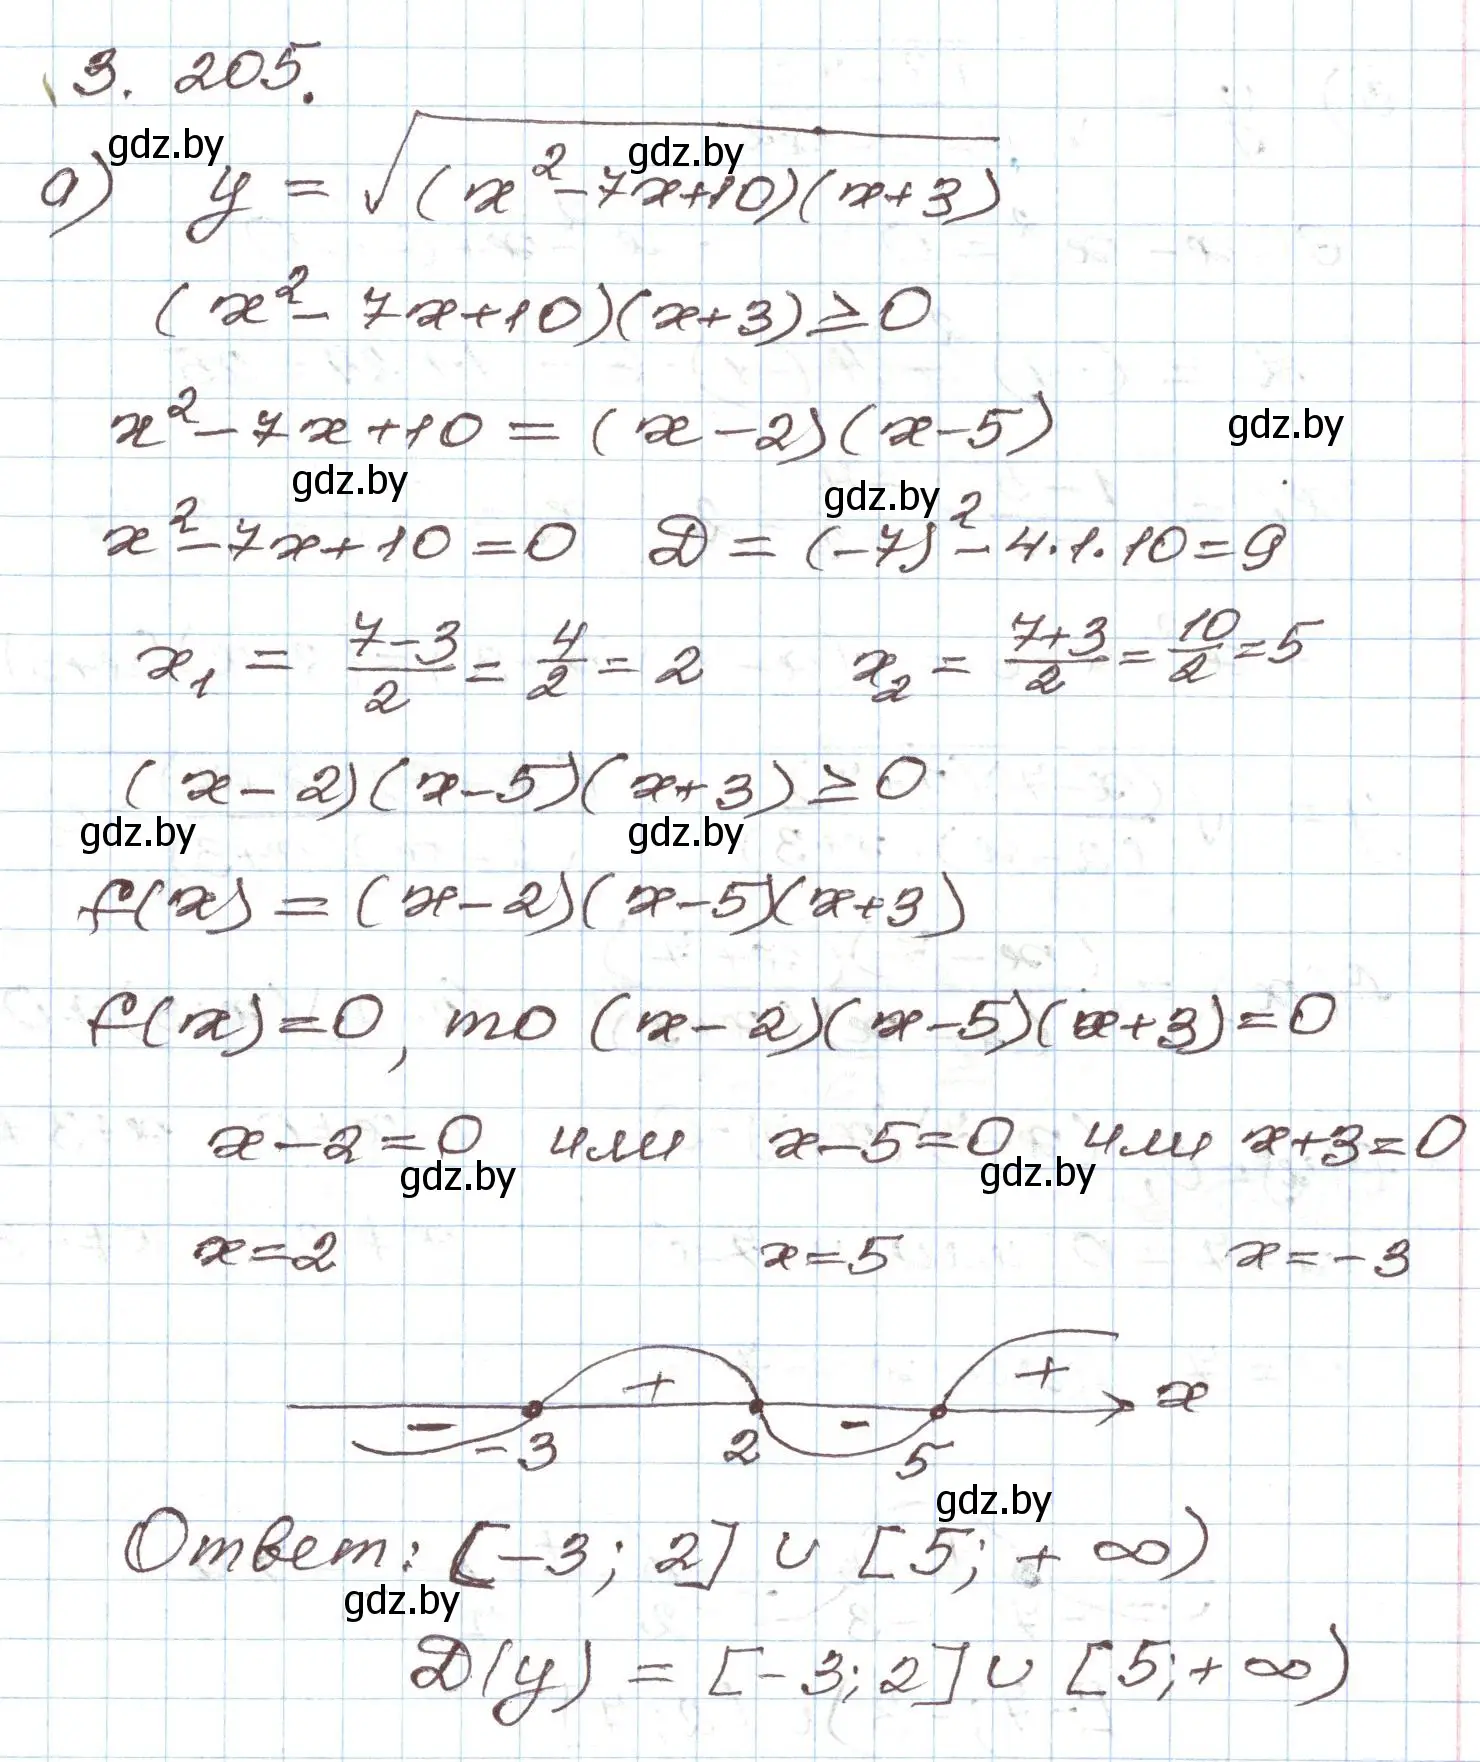 3. 205.
gdz.by
gdz.by
а) y = √((x² - 7x + 10)(x + 3))
(x² - 7x + 10)(x + 3) ≥ 0
x² - 7x + 10 = (x - 2)(x - 5)
gdz.by
gdz.by
gdz.by
x² - 7x + 10 = 0 D = (-7)² - 4·1·10 = 9
x₁ = (7-3)/2 = 4/2 = 2 x₂ = (7+3)/2 = 10/2 = 5
(x - 2)(x - 5)(x + 3) ≥ 0
gdz.by
gdz.by
f(x) = (x - 2)(x - 5)(x + 3)
f(x) = 0, то (x - 2)(x - 5)(x + 3) = 0
x - 2 = 0 или x - 5 = 0 или x + 3 = 0
gdz.by
gdz.by
x = 2 x = 5 x = -3
- + - + x
-3 2 5
gdz.by
Ответ: [-3; 2] ∪ [5; +∞)
gdz.by
D(y) = [-3; 2] ∪ [5; +∞)